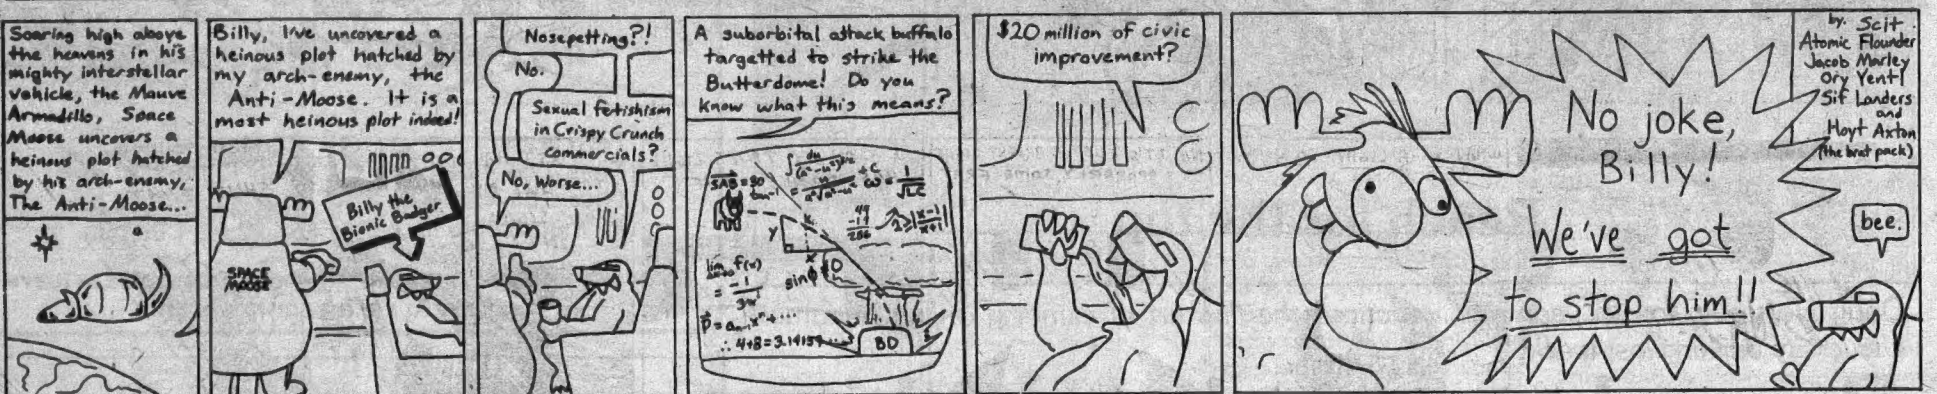 Soaring high above
the heavens in his
mighty interstellar
vehicle, the Mauve
Armadillo, Space
Moose uncovers a
heinous plot hatched
by his arch-enemy,
The Anti-Moose...
Billy, I've uncovered a
heinous plot hatched by
my arch-enemy, the
Anti-Moose. It is a
most heinous plot indeed!
Billy the
Bionic Badger
SPACE
MOOSE
Nosepetting?!
No.
Sexual fetishism
in Crispy Crunch
commercials?
No, Worse...
A suborbital attack buffalo
targetted to strike the
Butterdome! Do you
know what this means?
BD
$20 million of civic
improvement?
No joke,
Billy!
We've got
to stop him!!
by: Scit
Atomic Flounder
Jacob Marley
Ory Yentl
Sif Landers
and
Hoyt Axton
(the brat pack)
bee.